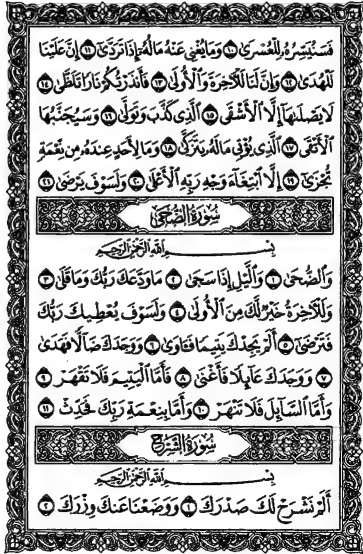 فَسَنُيَسِّرُهُۥ لِلْعُسْرَىٰ ١٠ وَمَا يُغْنِى عَنْهُ مَالُهُۥٓ إِذَا تَرَدَّىٰٓ ١١ إِنَّ عَلَيْنَا
لَلْهُدَىٰ ١٢ وَإِنَّ لَنَا لَلْـَٔاخِرَةَ وَٱلْأُولَىٰ ١٣ فَأَنذَرْتُكُمْ نَارًا تَلَظَّىٰ ١٤
لَا يَصْلَىٰهَآ إِلَّا ٱلْأَشْقَى ١٥ ٱلَّذِى كَذَّبَ وَتَوَلَّىٰ ١٦ وَسَيُجَنَّبُهَا
ٱلْأَتْقَى ١٧ ٱلَّذِى يُؤْتِى مَالَهُۥ يَتَزَكَّىٰ ١٨ وَمَا لِأَحَدٍ عِندَهُۥ مِن نِّعْمَةٍ
تُجْزَىٰٓ ١٩ إِلَّا ٱبْتِغَآءَ وَجْهِ رَبِّهِ ٱلْأَعْلَىٰ ٢٠ وَلَسَوْفَ يَرْضَىٰ ٢١
سُورَةُ الضُّحَىٰ
بِسْمِ ٱللَّهِ ٱلرَّحْمَـٰنِ ٱلرَّحِيمِ
وَٱلضُّحَىٰ ١ وَٱلَّيْلِ إِذَا سَجَىٰ ٢ مَا وَدَّعَكَ رَبُّكَ وَمَا قَلَىٰ ٣
وَلَلْـَٔاخِرَةُ خَيْرٌ لَّكَ مِنَ ٱلْأُولَىٰ ٤ وَلَسَوْفَ يُعْطِيكَ رَبُّكَ
فَتَرْضَىٰٓ ٥ أَلَمْ يَجِدْكَ يَتِيمًا فَـَٔاوَىٰ ٦ وَوَجَدَكَ ضَآلًّا فَهَدَىٰ
٧ وَوَجَدَكَ عَآئِلًا فَأَغْنَىٰ ٨ فَأَمَّا ٱلْيَتِيمَ فَلَا تَقْهَرْ ٩
وَأَمَّا ٱلسَّآئِلَ فَلَا تَنْهَرْ ١٠ وَأَمَّا بِنِعْمَةِ رَبِّكَ فَحَدِّثْ ١١
سُورَةُ الشَّرْحِ
بِسْمِ ٱللَّهِ ٱلرَّحْمَـٰنِ ٱلرَّحِيمِ
أَلَمْ نَشْرَحْ لَكَ صَدْرَكَ ١ وَوَضَعْنَا عَنكَ وِزْرَكَ ٢